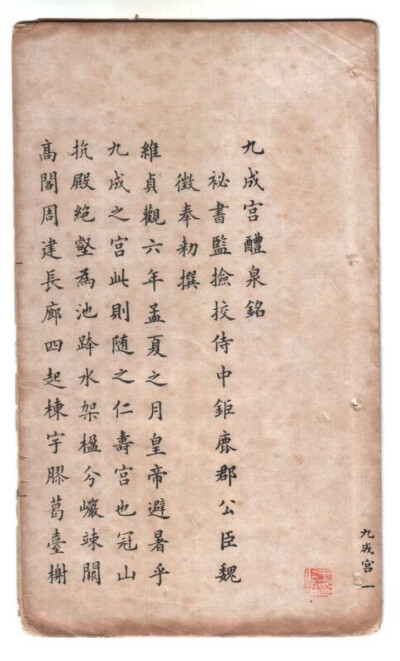 九成宮一
九成宮醴泉銘
祕書監撿挍侍中鉅鹿郡公臣魏
徵奉勑撰
維貞觀六年孟夏之月皇帝避暑乎
九成之宮此則随之仁壽宮也冠山
抗殿絶壑為池跨水架楹分巗竦闕
髙閣周建長廊四起棟宇膠葛臺榭